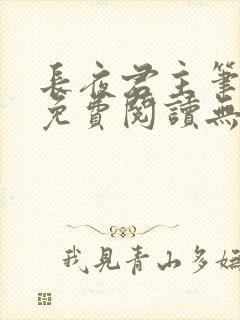 長夜君主筆
免費閱讀無
我見青山多嫵